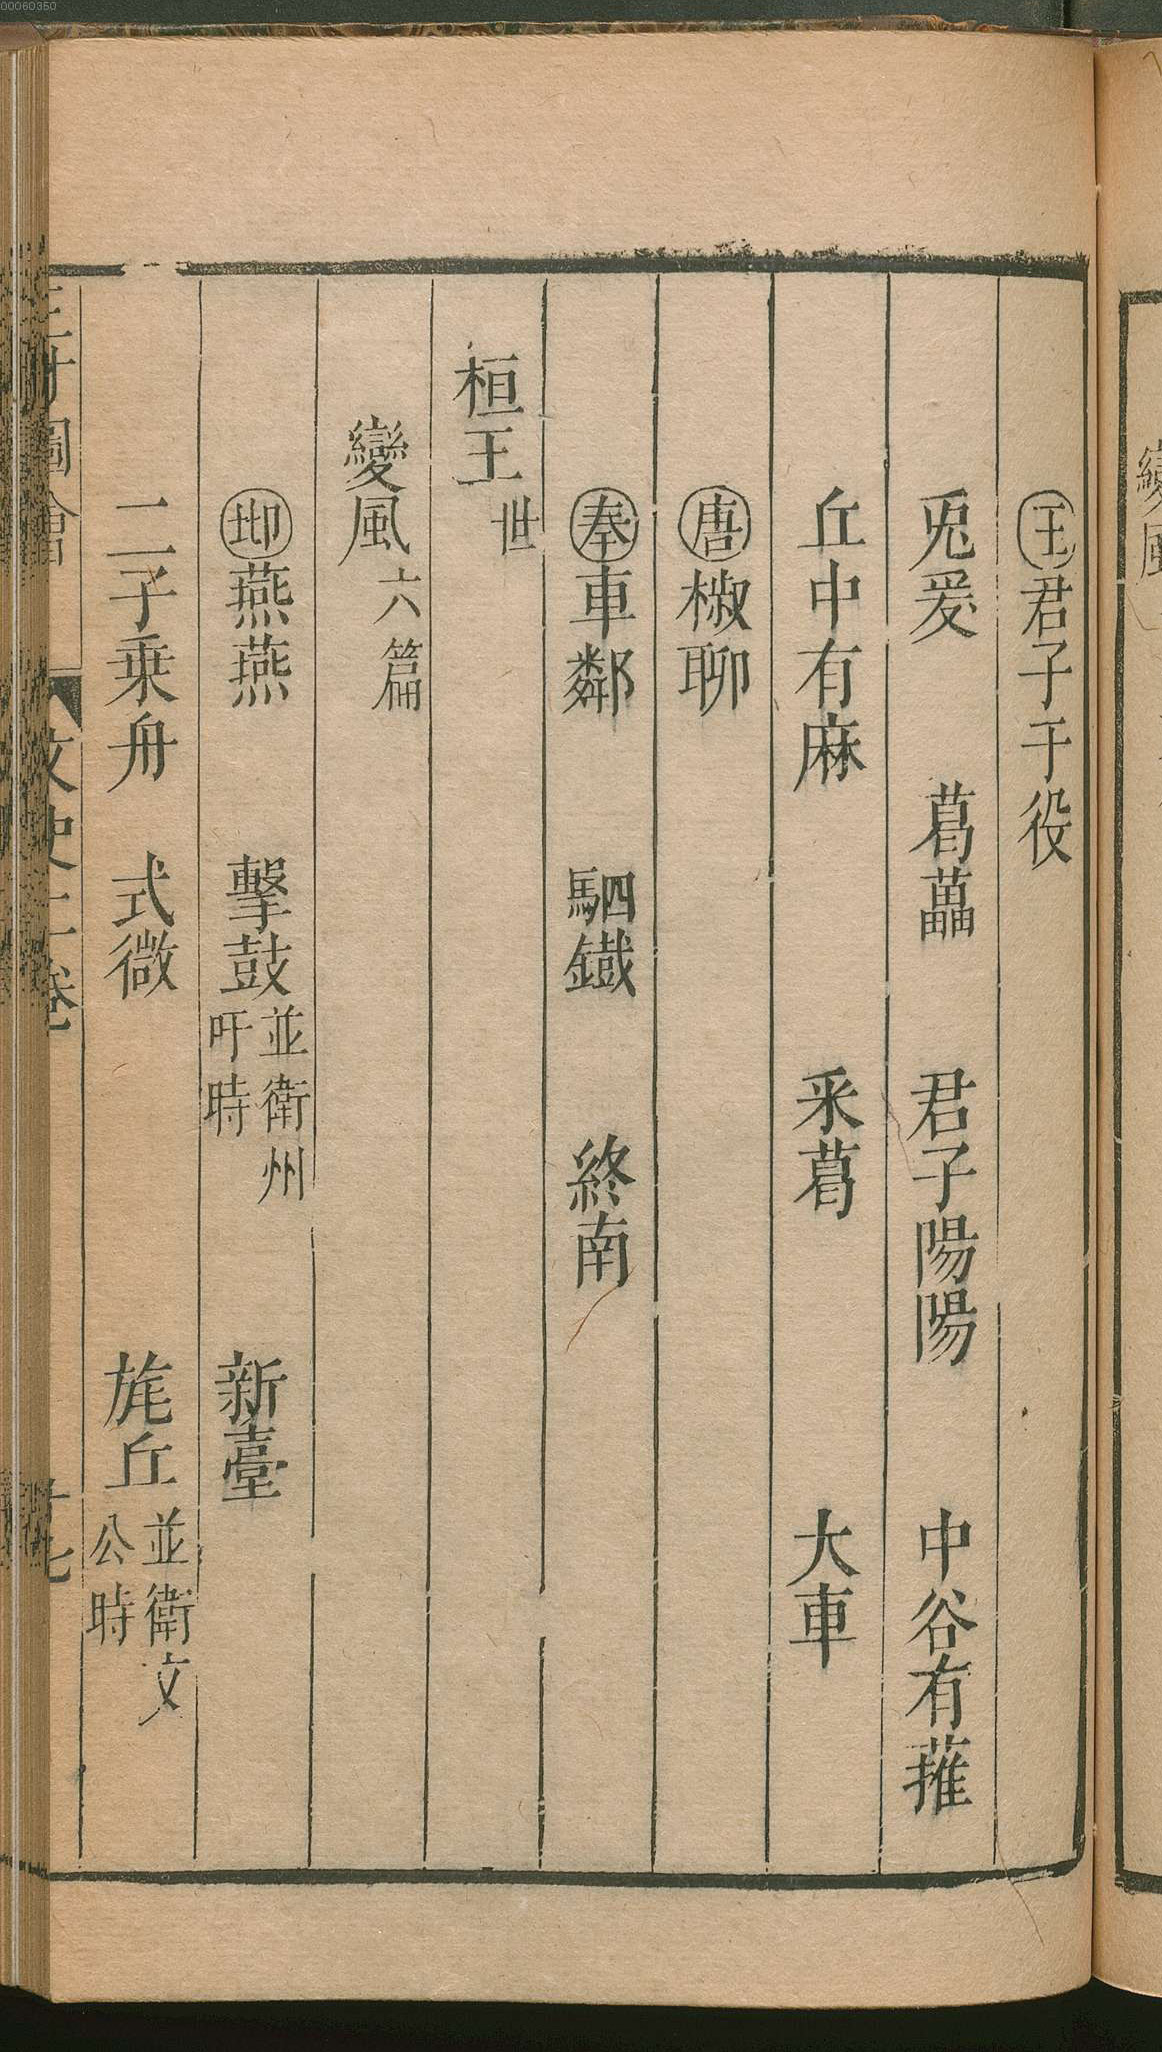 變風
王君子于役
兎爰 葛藟 君子陽陽 中谷有蓷
丘中有麻 采葛 大車
唐椒聊
秦車鄰 駟鐵 終南
桓王世
變風六篇
邶燕燕 擊鼓並衛州吁時 新臺
二子乗舟 式微 旄丘並衛文公時
三才圖會 文史二卷 十七
00060350